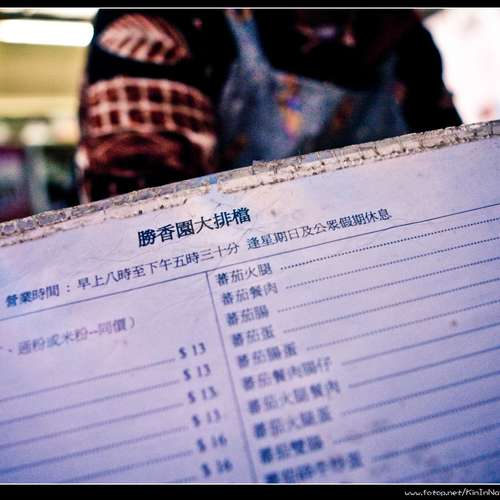 勝香園大排檔
營業時間：早上八時至下午五時三十分 逢星期日及公眾假期休息
、通粉或米粉--同價）
$ 13
$ 13
$ 13
$ 13
$ 16
$ 16
蕃茄火腿
蕃茄餐肉
蕃茄腸
蕃茄蛋
蕃茄腸蛋
蕃茄餐肉腸仔
蕃茄火腿餐肉
蕃茄火腿蛋
蕃茄雙腸